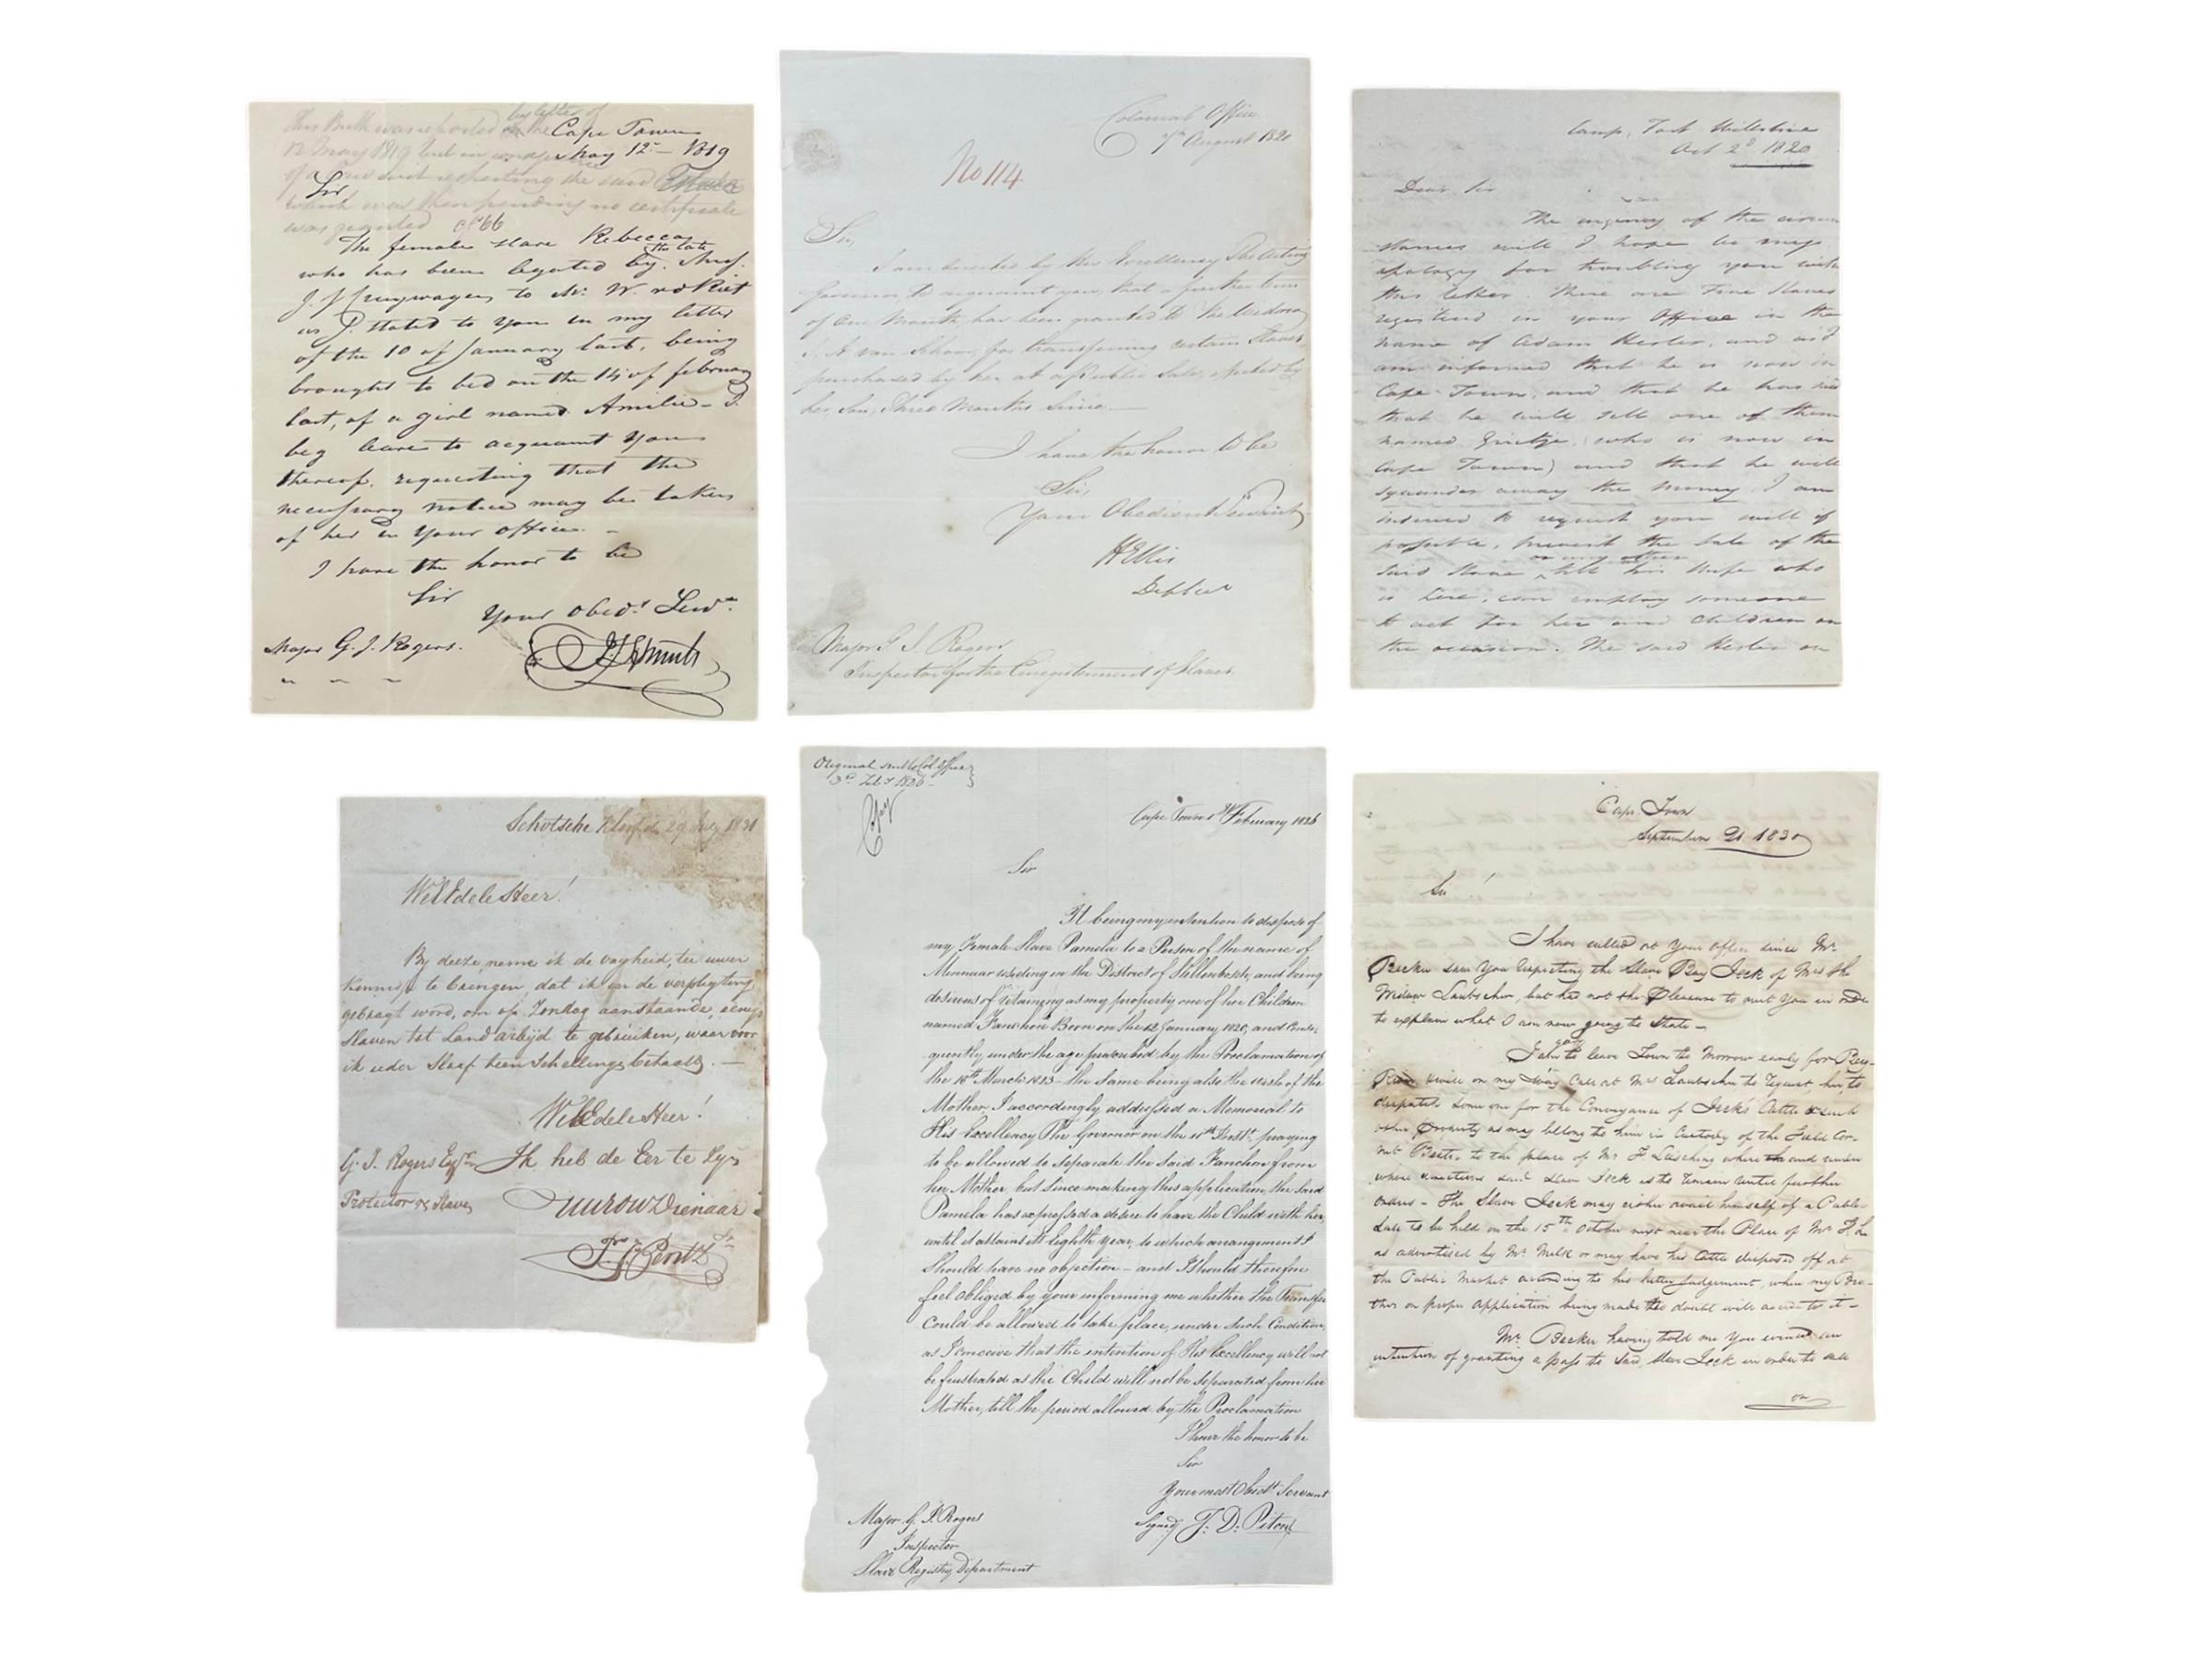 This Birth was reported by letter of
12 May 1819 but in consequence
of a law suit respecting the said
which was then pending no certificate
was granted
Cape Town
May 12th - 1819
Sir
The female slave Rebecca
who has been legated by the late Mrs.
J. J. Cruywagen to Mr. W.
as I stated to you in my letter
of the 10 of January last, being
brought to bed on the 14 of february
last, of a girl named Amilie - I
beg leave to acquaint you
thereof, requesting that the
necessary notice may be taken
of her in Your office. -
I have the honor to be
Sir
Your obedt. Servt.
Major G. J. Rogers.
Colonial Office
7th August 1820
No 114
Sir,
I am directed by His Excellency The Acting
Governor to acquaint you, that a further term
of One Month has been granted to The Widow
van Schoor for transferring certain Slaves,
purchased by her at a Public Sale, effected by
her Son, Three Months Since.
I have the honor to be
Sir,
Your Obedient Servant
H Ellis
Major G. J. Rogers
Inspector for the Enregisterment of Slaves.
Camp, Fort Willshire
Oct 2d 1820
Dear Sir
The urgency of the circum
stances will I hope be my
apology for troubling you with
this letter. There are Five Slaves
registered in your Office in the
name of Adam Hester, and as I
am informed that he is now in
Cape Town, and that he has said
that he will sell one of them
named Grietje, (who is now in
Cape Town) and that he will
squander away the money I am
induced to request you will if
possible, prevent the sale of the
said Slave or any other till his Wife who
is here, can employ someone
to act for her and Children on
the occasion. The said Hester on
Schotsche Kloof de 29 July 1831
WelEdele Heer!
By deeze neme ik de vryheid, ter uwer
kennisse te brengen, dat ik in de verpligting
gebragt word, om op Zondag aanstaande, eenige
Slaven tot Land arbeijd te gebruiken, waar voor
ik ieder Slaaf Schellings betaald. -
WelEdele Heer!
G. J. Rogers Esqr. Ik heb de Eer te zyn
Protector of Slaves UwrouwDienaar
Original sent to Col. Office
3d Feby 1826
Copy
Cape Town 1st February 1826
Sir
It being my intention to dispose of
my Female Slave Pamela to a Person of the name of
Minnaar residing in the District of Stellenbosch, and being
desirous of retaining as my property one of her Children
named Fanchon Born on the 12 January 1820, and conse-
quently under the age prescribed by the Proclamation of
the 18th March 1823 - the Same being also the wish of the
Mother, I accordingly addressed a Memorial to
His Excellency The Governor on the Instt. praying
to be allowed to separate the said Fanchon from
her Mother, but since making this application, the said
Pamela has expressed a desire to have the Child with her,
until it attains its Eighth year, to which arrangement I
Should have no objection - and I Should therefore
feel obliged by your informing me whether the Transfer
Could be allowed to take place, under such Condition,
as I conceive that the intention of His Excellency will not
be frustrated as the Child will not be separated from her
Mother, till the period allowed by the Proclamation
I have the honor to be
Sir
Your most Obedt. Servant
Signed J. D. Piton
Major G. J. Rogers
Inspector
Slave Registry Department
Cape Town
September 21 1830
Sir!
I have called at Your office since Mr.
Becker saw You respecting the Slave Boy Jack of Mrs the
Widow Laubscher, but had not the Pleasure to meet You in order
to explain what I am now going to State -
I am to leave Town the Morrow early for Berg
River & will on my Way Call at Mrs Laubscher to request her, to
dispatch some one for the Conveyance of Jack's Cattle & such
other Property as may belong to him in Custody of the Field Cor-
net to the place of Mr F. Liesching where and under
whose directions said Slave Jack is to Remain until further
orders - The Slave Jack may either avail himself of a Public
Sale to be held on the 15th October next near the Place of Mr F. L.
as advertised by Mr. Melk or may have his Cattle disposed off at
the Public Market according to his better Judgement, when my Bro-
ther on proper application being made no doubt will accede to it -
Mr. Becker having told me You evinced an
intention of granting a pass to said Slave Jack in order to call
on